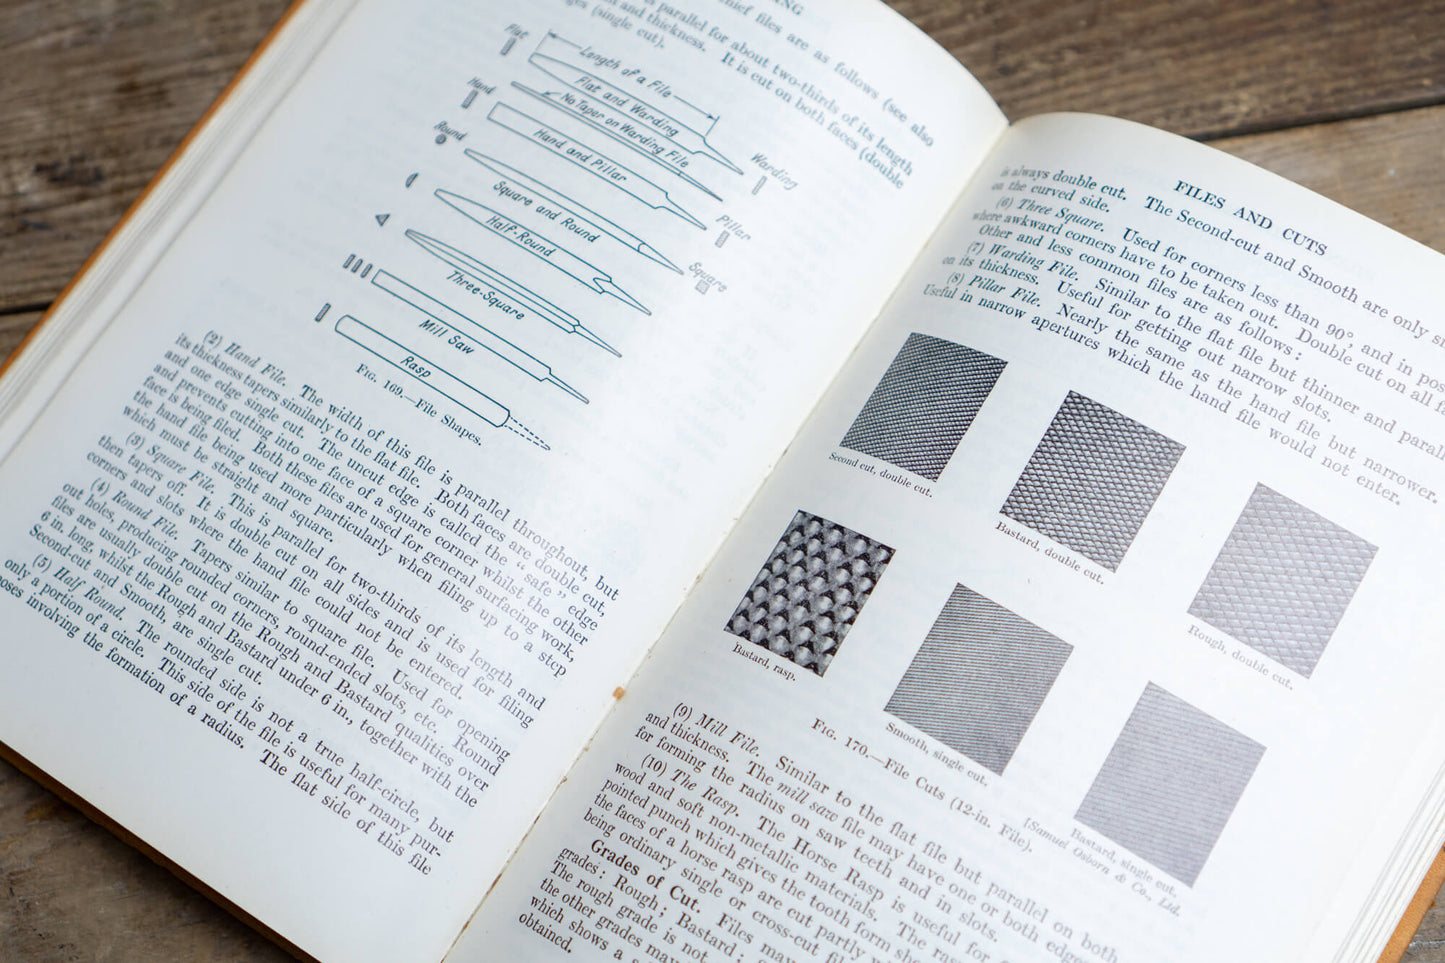 ING
chief files are as follows (see also
is parallel for about two-thirds of its length
and thickness. It is cut on both faces (double
(single cut).
Flat
Length of a File
Flat and Warding
No Taper on Warding File
Warding
Hand
Hand and Pillar
Pillar
Round
Square and Round
Square
Half-Round
Three-Square
Mill Saw
Rasp
FIG. 169.—File Shapes.
(2) Hand File. The width of this file is parallel throughout, but
its thickness tapers similarly to the flat file. Both faces are double cut,
and one edge single cut. The uncut edge is called the "safe" edge
and prevents cutting into one face of a square corner whilst the other
face is being filed. Both these files are used for general surfacing work,
the hand file being used more particularly when filing up to a step
which must be straight and square.
(3) Square File. This is parallel for two-thirds of its length and
then tapers off. It is double cut on all sides and is used for filing
corners and slots where the hand file could not be entered.
(4) Round File. Tapers similar to square file. Used for opening
out holes, producing rounded corners, round-ended slots, etc. Round
files are usually double cut on the Rough and Bastard qualities over
6 in. long, whilst the Rough and Bastard under 6 in., together with the
Second-cut and Smooth, are single cut.
(5) Half Round. The rounded side is not a true half-circle, but
only a portion of a circle. This side of the file is useful for many pur-
poses involving the formation of a radius. The flat side of this file
FILES AND CUTS
is always double cut. The Second-cut and Smooth are only
on the curved side.
(6) Three Square. Used for corners less than 90°, and in
where awkward corners have to be taken out. Double cut on all
Other and less common files are as follows:
(7) Warding File. Similar to the flat file but thinner and
on its thickness. Useful for getting out narrow slots.
(8) Pillar File. Nearly the same as the hand file but narrower.
Useful in narrow apertures which the hand file would not enter.
Second cut, double cut.
Bastard, double cut.
Rough, double cut.
Bastard, rasp.
Smooth, single cut.
Bastard, single cut.
[Samuel Osborn & Co., Ltd.
FIG. 170.—File Cuts (12-in. File).
(9) Mill File. Similar to the flat file but parallel on both
and thickness. The mill saw file may have one or both edges
for forming the radius on saw teeth and in slots.
(10) The Rasp. The Horse Rasp is useful for
wood and soft non-metallic materials. The
pointed punch which gives the tooth form
the faces of a horse rasp are cut partly
being ordinary single or cross-cut
Grades of Cut. Files may
grades: Rough; Bastard;
The rough grade is not
the other grades may
which shows a
obtained.